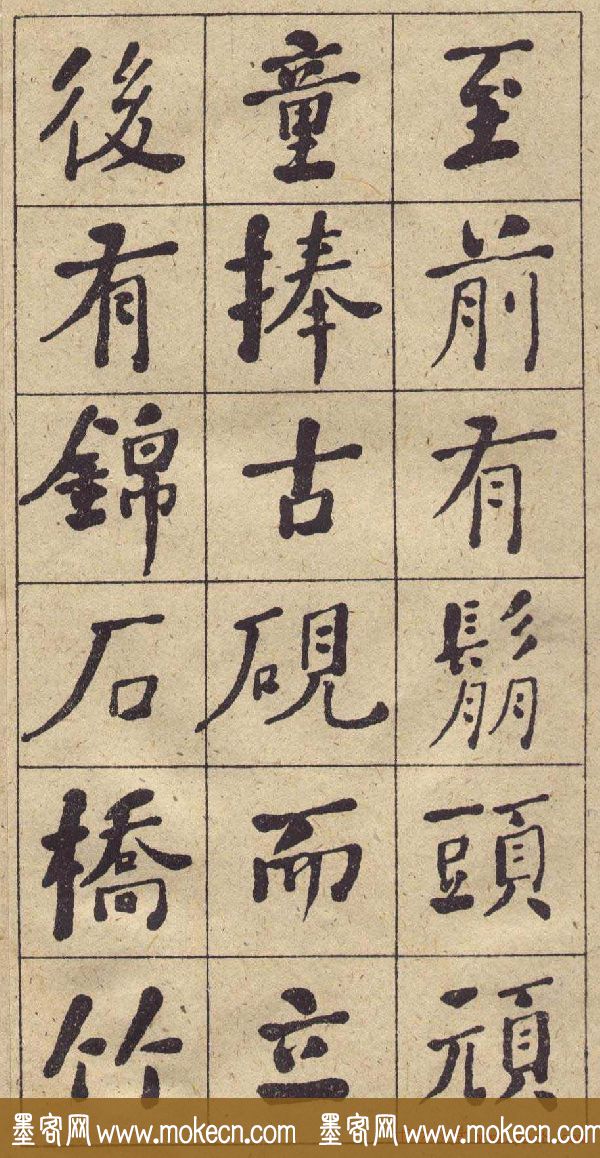 至前有鬅頭頑
童捧古硯而立
後有錦石橋竹
墨客网 www.mokecn.com 墨客网 www.mokecn.com